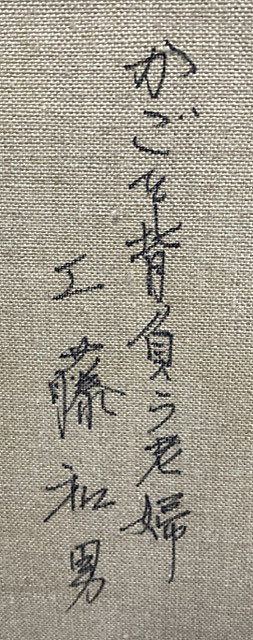 かごを背負う老婦
工藤和男